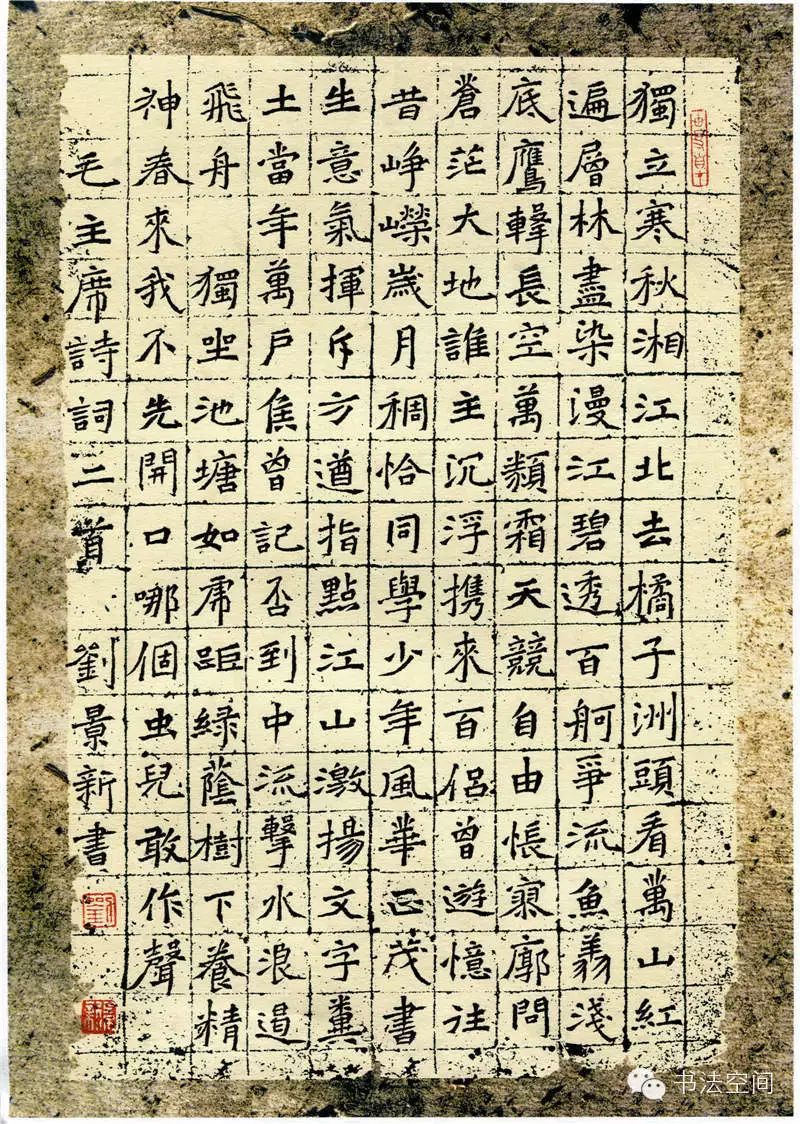 獨立寒秋湘江北去橘子洲頭看萬山紅
遍層林盡染漫江碧透百舸爭流魚翔淺
底鷹擊長空萬類霜天競自由悵寥廓問
蒼茫大地誰主沉浮携來百侶曾遊憶往
昔崢嶸歲月稠恰同學少年風華正茂書
生意氣揮斥方遒指點江山激揚文字糞
土當年萬戶侯曾記否到中流擊水浪遏
飛舟 獨坐池塘如虎踞綠蔭樹下養精
神春來我不先開口哪個虫兒敢作聲
毛主席詩詞二首 劉景新書
书法空间